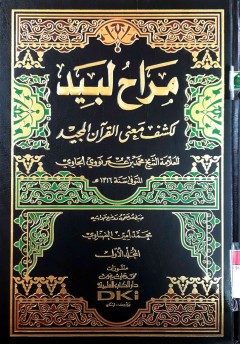 مراح لبيد
لكشف معنى القرآن المجيد
للعلامة الشيخ محمد بن عمر نووي الجاوي
المتوفى سنة ١٣١٦ هـ
محمد أمين الضناوي
المجلد الأول
منشورات
محمد علي بيضون
دار الكتب العلمية
DKi